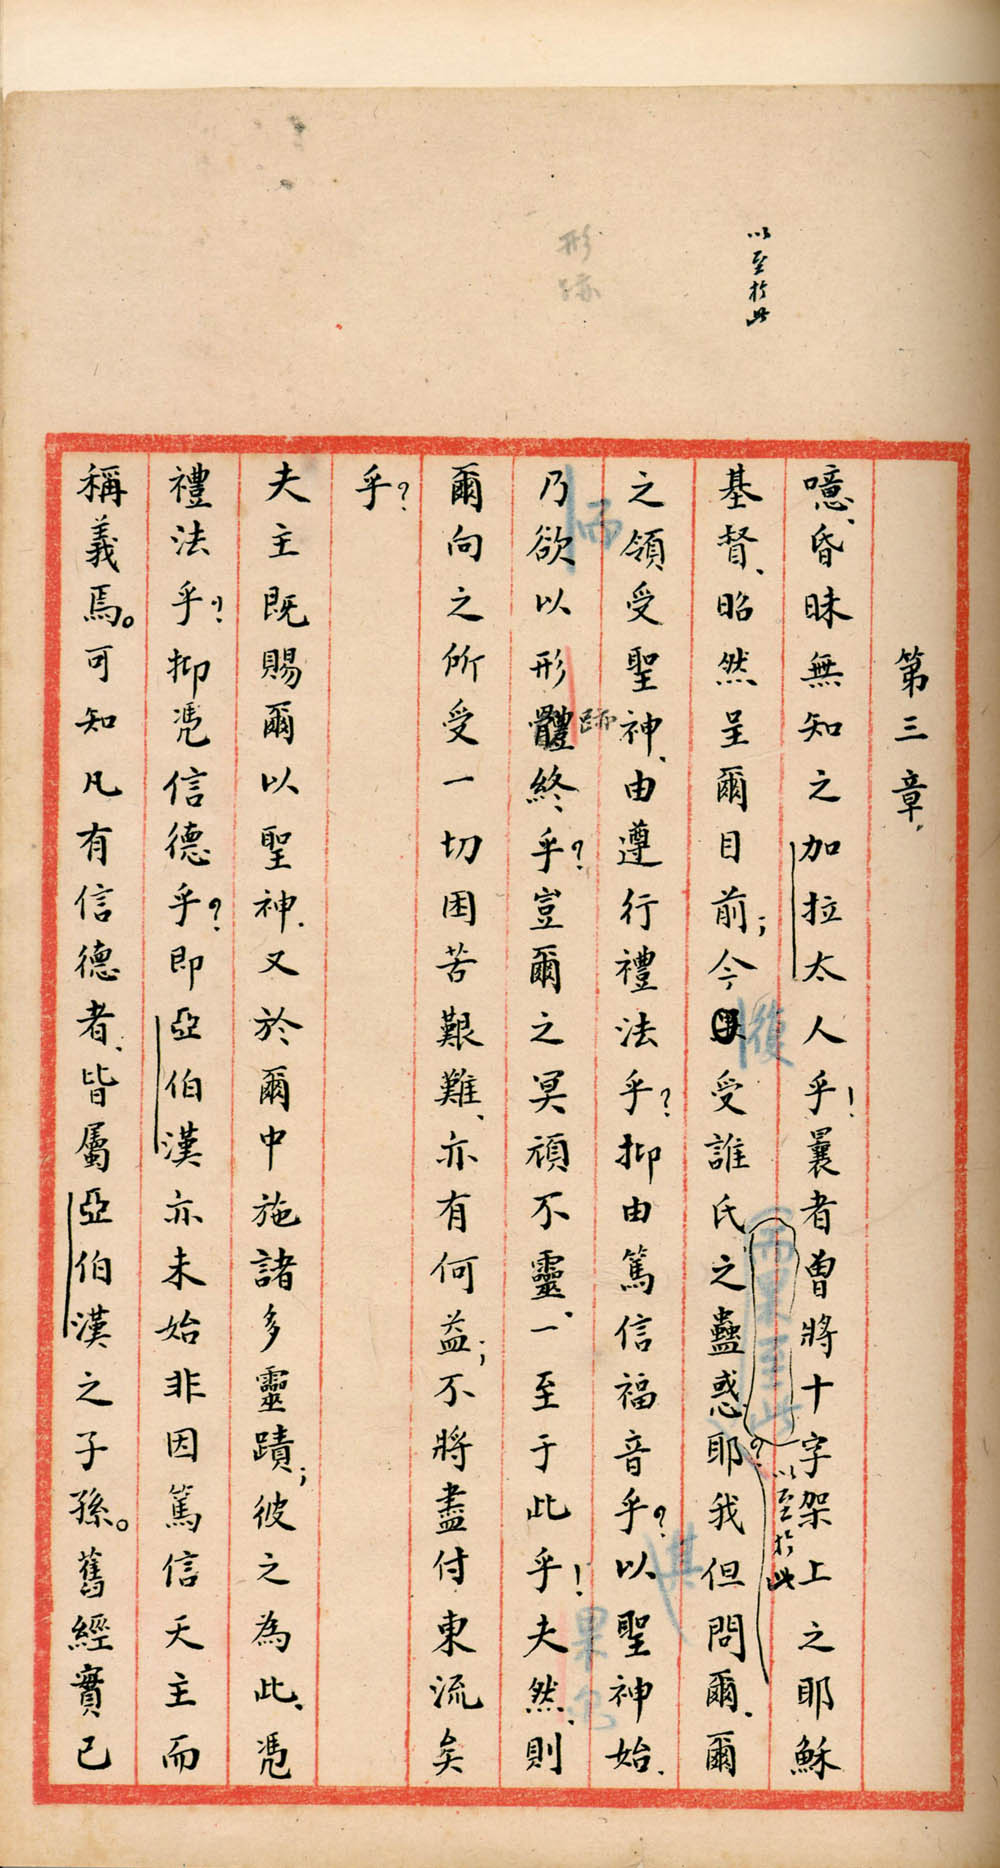 以至於此
形
跡
第三章
噫、昏昧無知之加拉太人乎！曩者曾將十字架上之耶穌
基督、昭然呈爾目前；今受誰氏之蠱惑耶？我但問爾、爾
復
以至於此
之領受聖神、由遵行禮法乎？抑由篤信福音乎？以聖神始、
其
乃欲以形體終乎？豈爾之冥頑不靈、一至于此乎！夫然、則
而
跡
果爾
爾向之所受一切困苦艱難、亦有何益；不將盡付東流矣
乎？
夫主既賜爾以聖神、又於爾中施諸多靈蹟；彼之為此、凴
禮法乎？抑凴信德乎？即亞伯漢亦未始非因篤信天主而
稱義焉。可知凡有信德者、皆屬亞伯漢之子孫。舊經實已